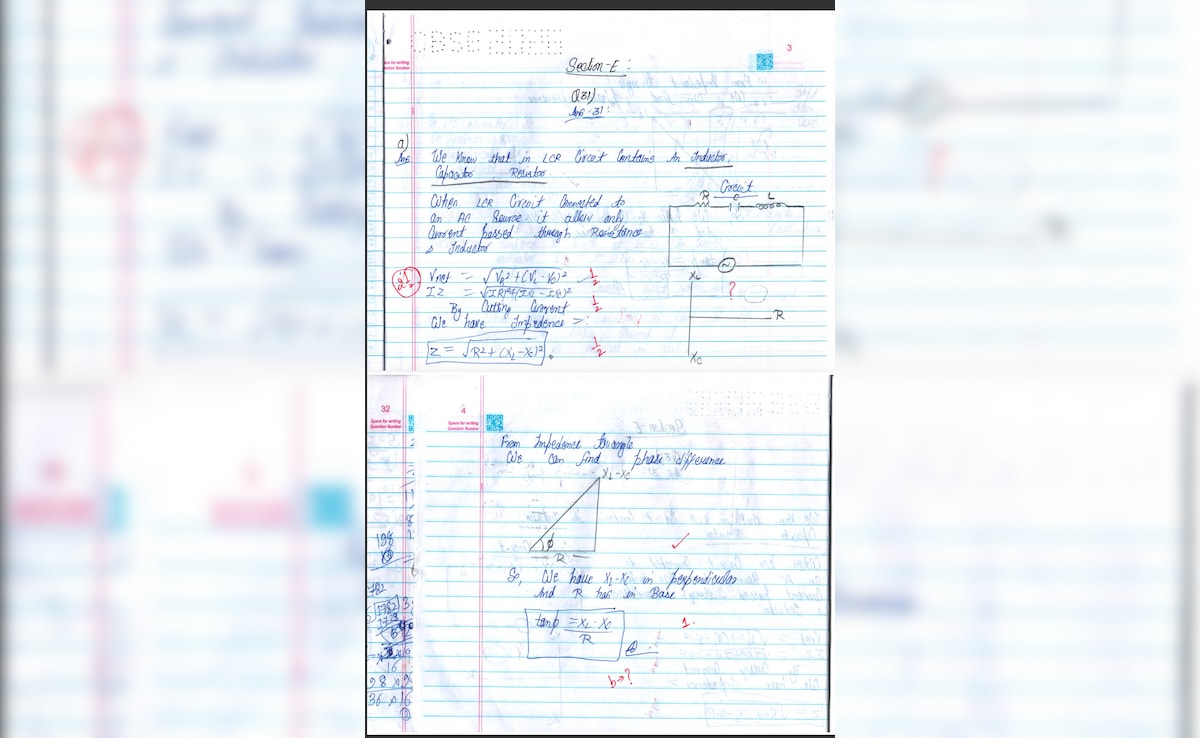 3
Section-E :
Q31)
Ans-31:
a)
Ans
We Know that in LCR Circuit Contains An Inductor,
Capacitor Resistor.
When LCR Circuit Connected to
an AC Source it allow only
Current passed through Resistance
& Inductor
Circuit
R C L
2½
Vnet = √VR²+(VL-VC)² ½
IZ = √(IR)²+(IXL-IXC)²
By Cutting Current ½
We have Impedence =>:
Z = √R²+(XL-XC)² ½
XL
?
R
XC
32
4
Space for writing
Question Number
Space for writing
Question Number
From Impedence triangle
We can find phase difference
XL-XC
ϕ
R
So, We have XL-XC in perpendicular
And R has in Base
tanϕ = XL-XC
R
1.
b→?